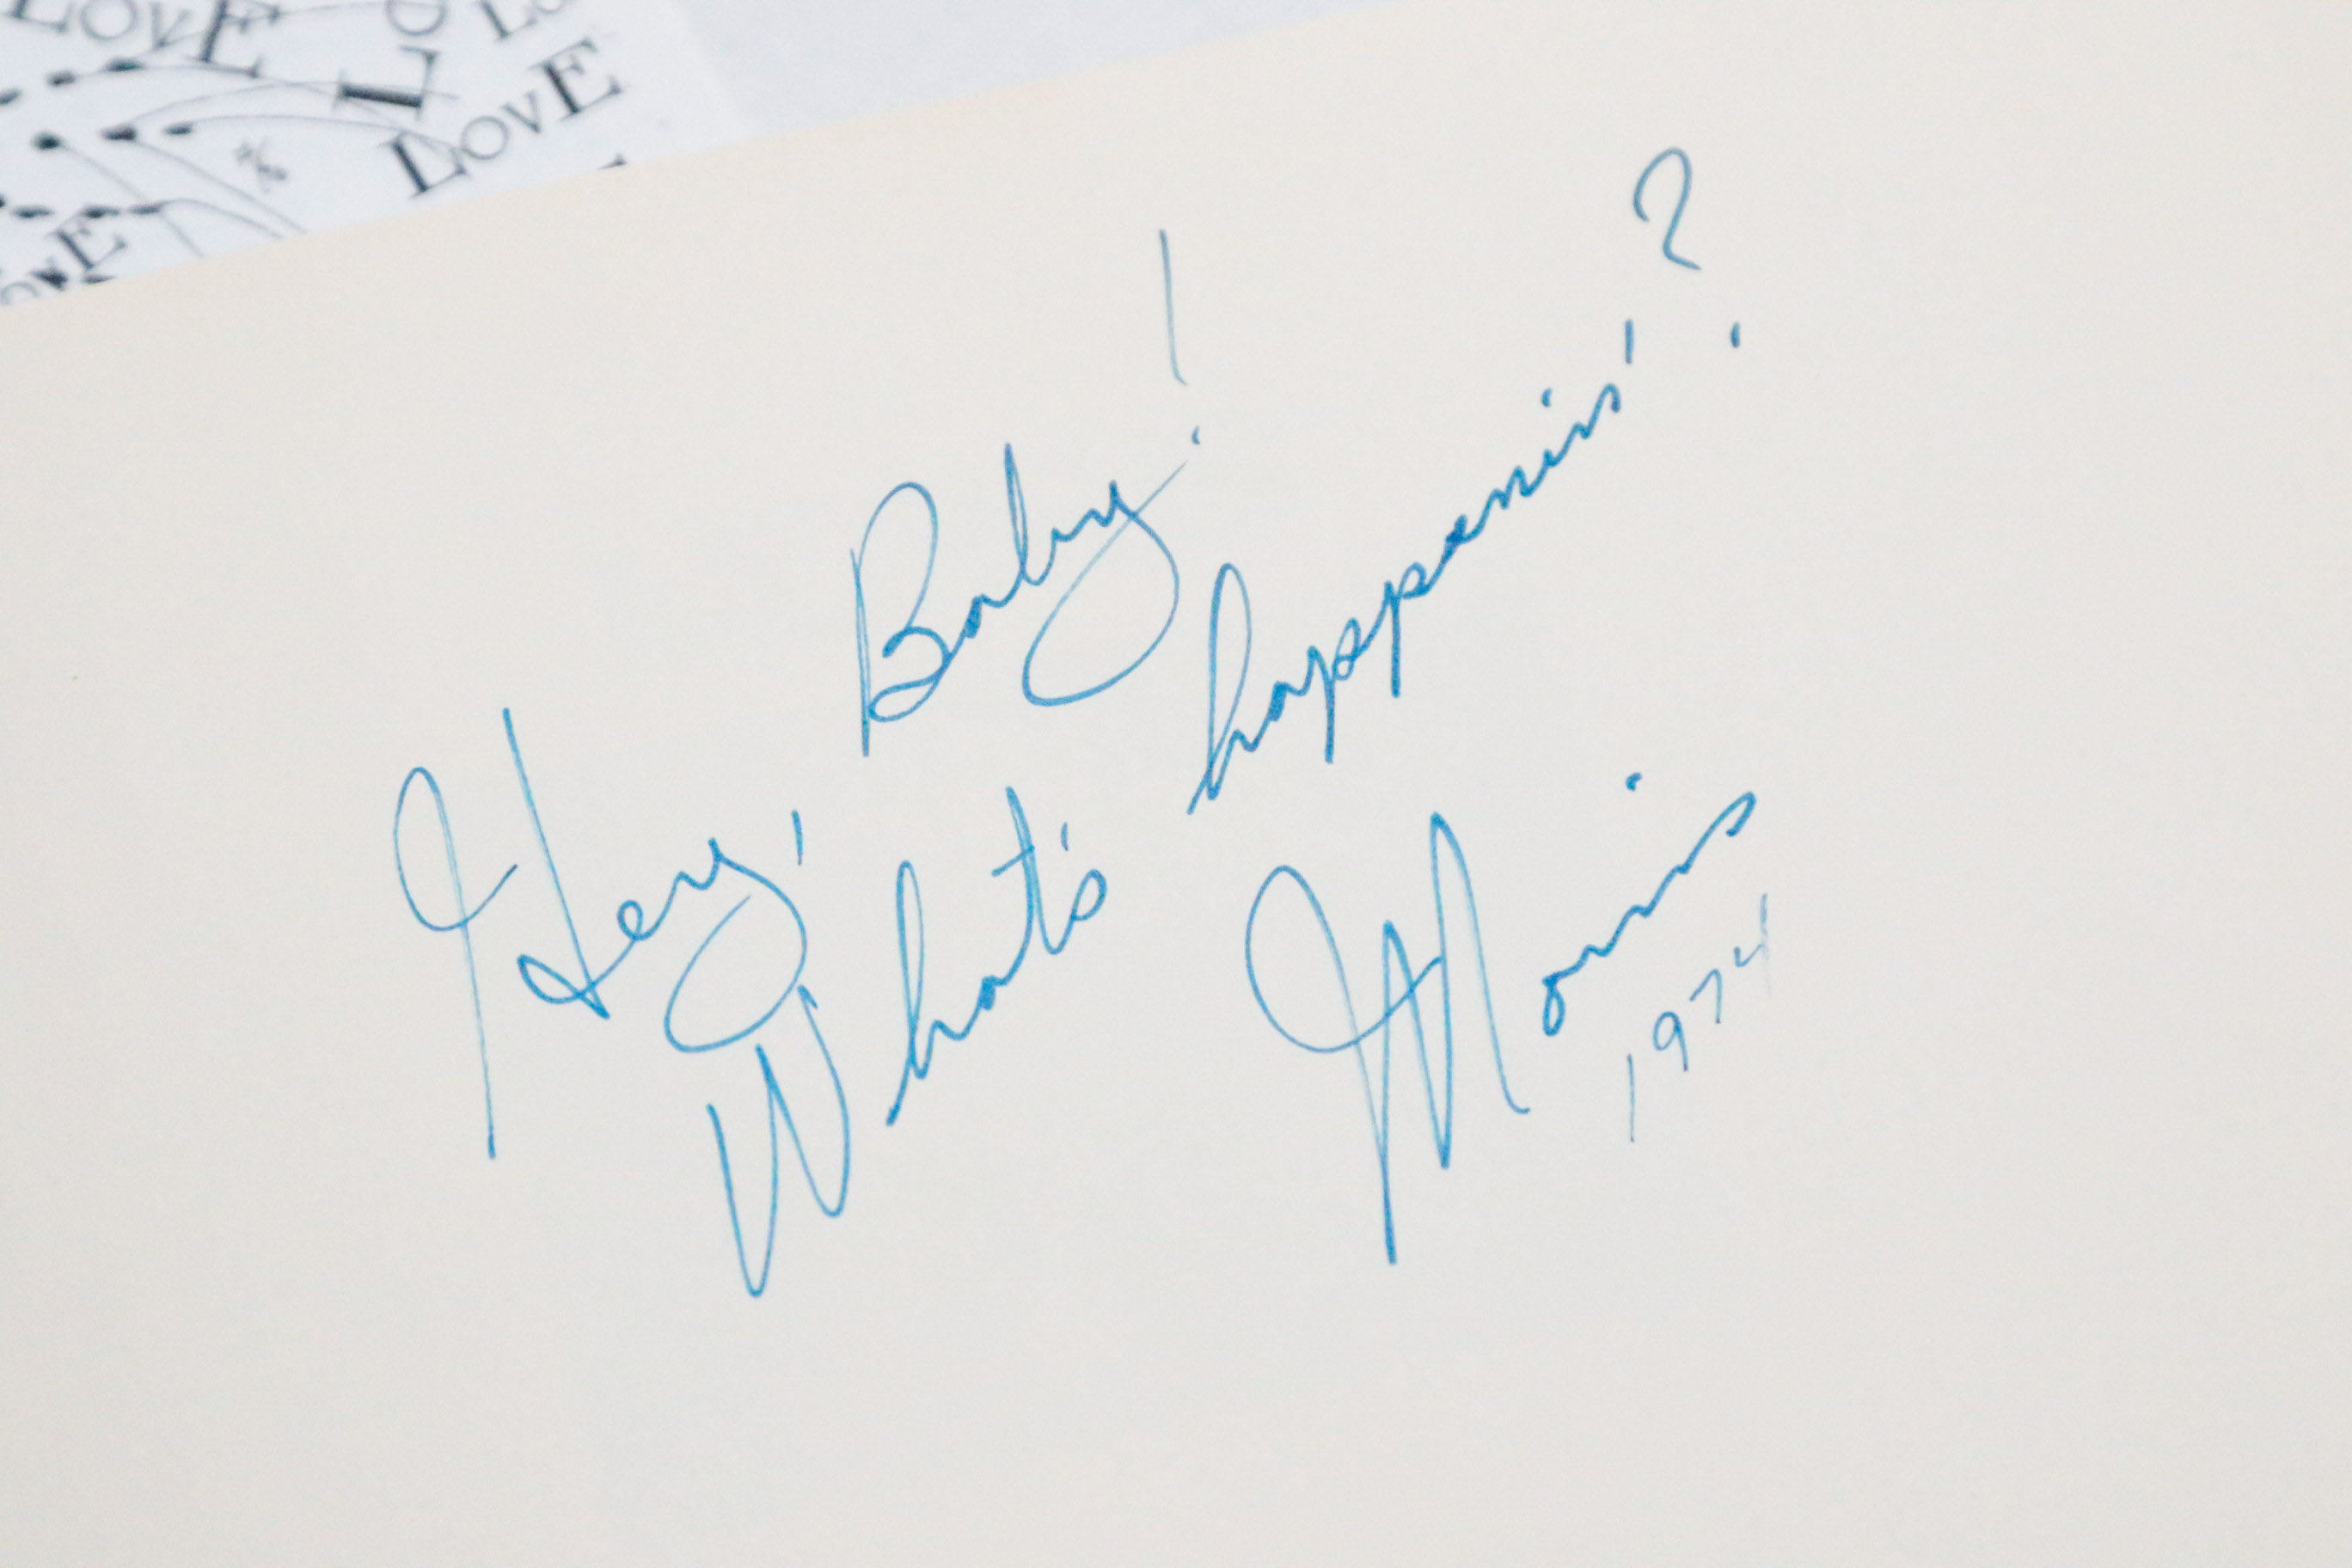 LOVE
LO
LO
LOVE
OVE
Hey, Baby!
What's happenin'?
Morris
1974